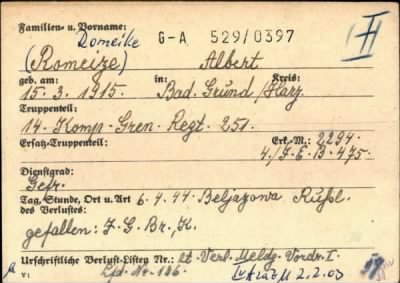 Familien- u. Vorname: G-A 529/0397 II
Romeike
(Romeize) Albert
geb. am: in: Kreis:
15. 3. 1915. Bad. Grund/Harz.
Truppenteil:
14. Komp. Gren. Regt. 251.
Ersatz-Truppenteil: Erk.-M.: 2294.
4./J.E.B. 475.
Dienstgrad:
Gefr.
Tag, Stunde, Ort u. Art 6.4.44 Beljazowa Rußl.
des Verlustes:
gefallen: J.G. Br., K.
Urschriftliche Verlust-Listen Nr.: lt. Verl. Meldg. Vordr. I.
v: Lfd. Nr. 186. 2.2.03